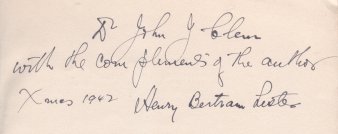 Dr John J Glenn
with the compliments of the author
Xmas 1942 Henry Bertram Lister